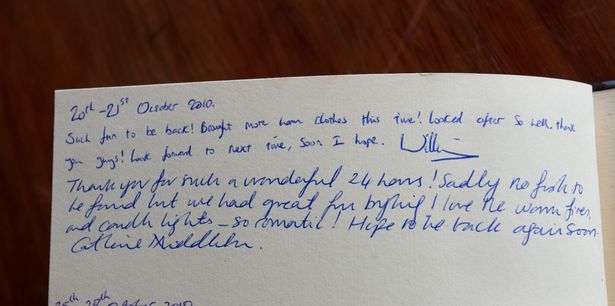 20th - 21st October 2010.
Such fun to be back! Brought more warm clothes this time! Looked after so well, thank
you guys! Look forward to next time, soon I hope. William
Thank you for such a wonderful 24 hours! Sadly no fish to
be found but we had great fun trying! I love the warm fires
and candle lights - so romantic! Hope to be back again soon.
Catherine Middleton.
October 2010